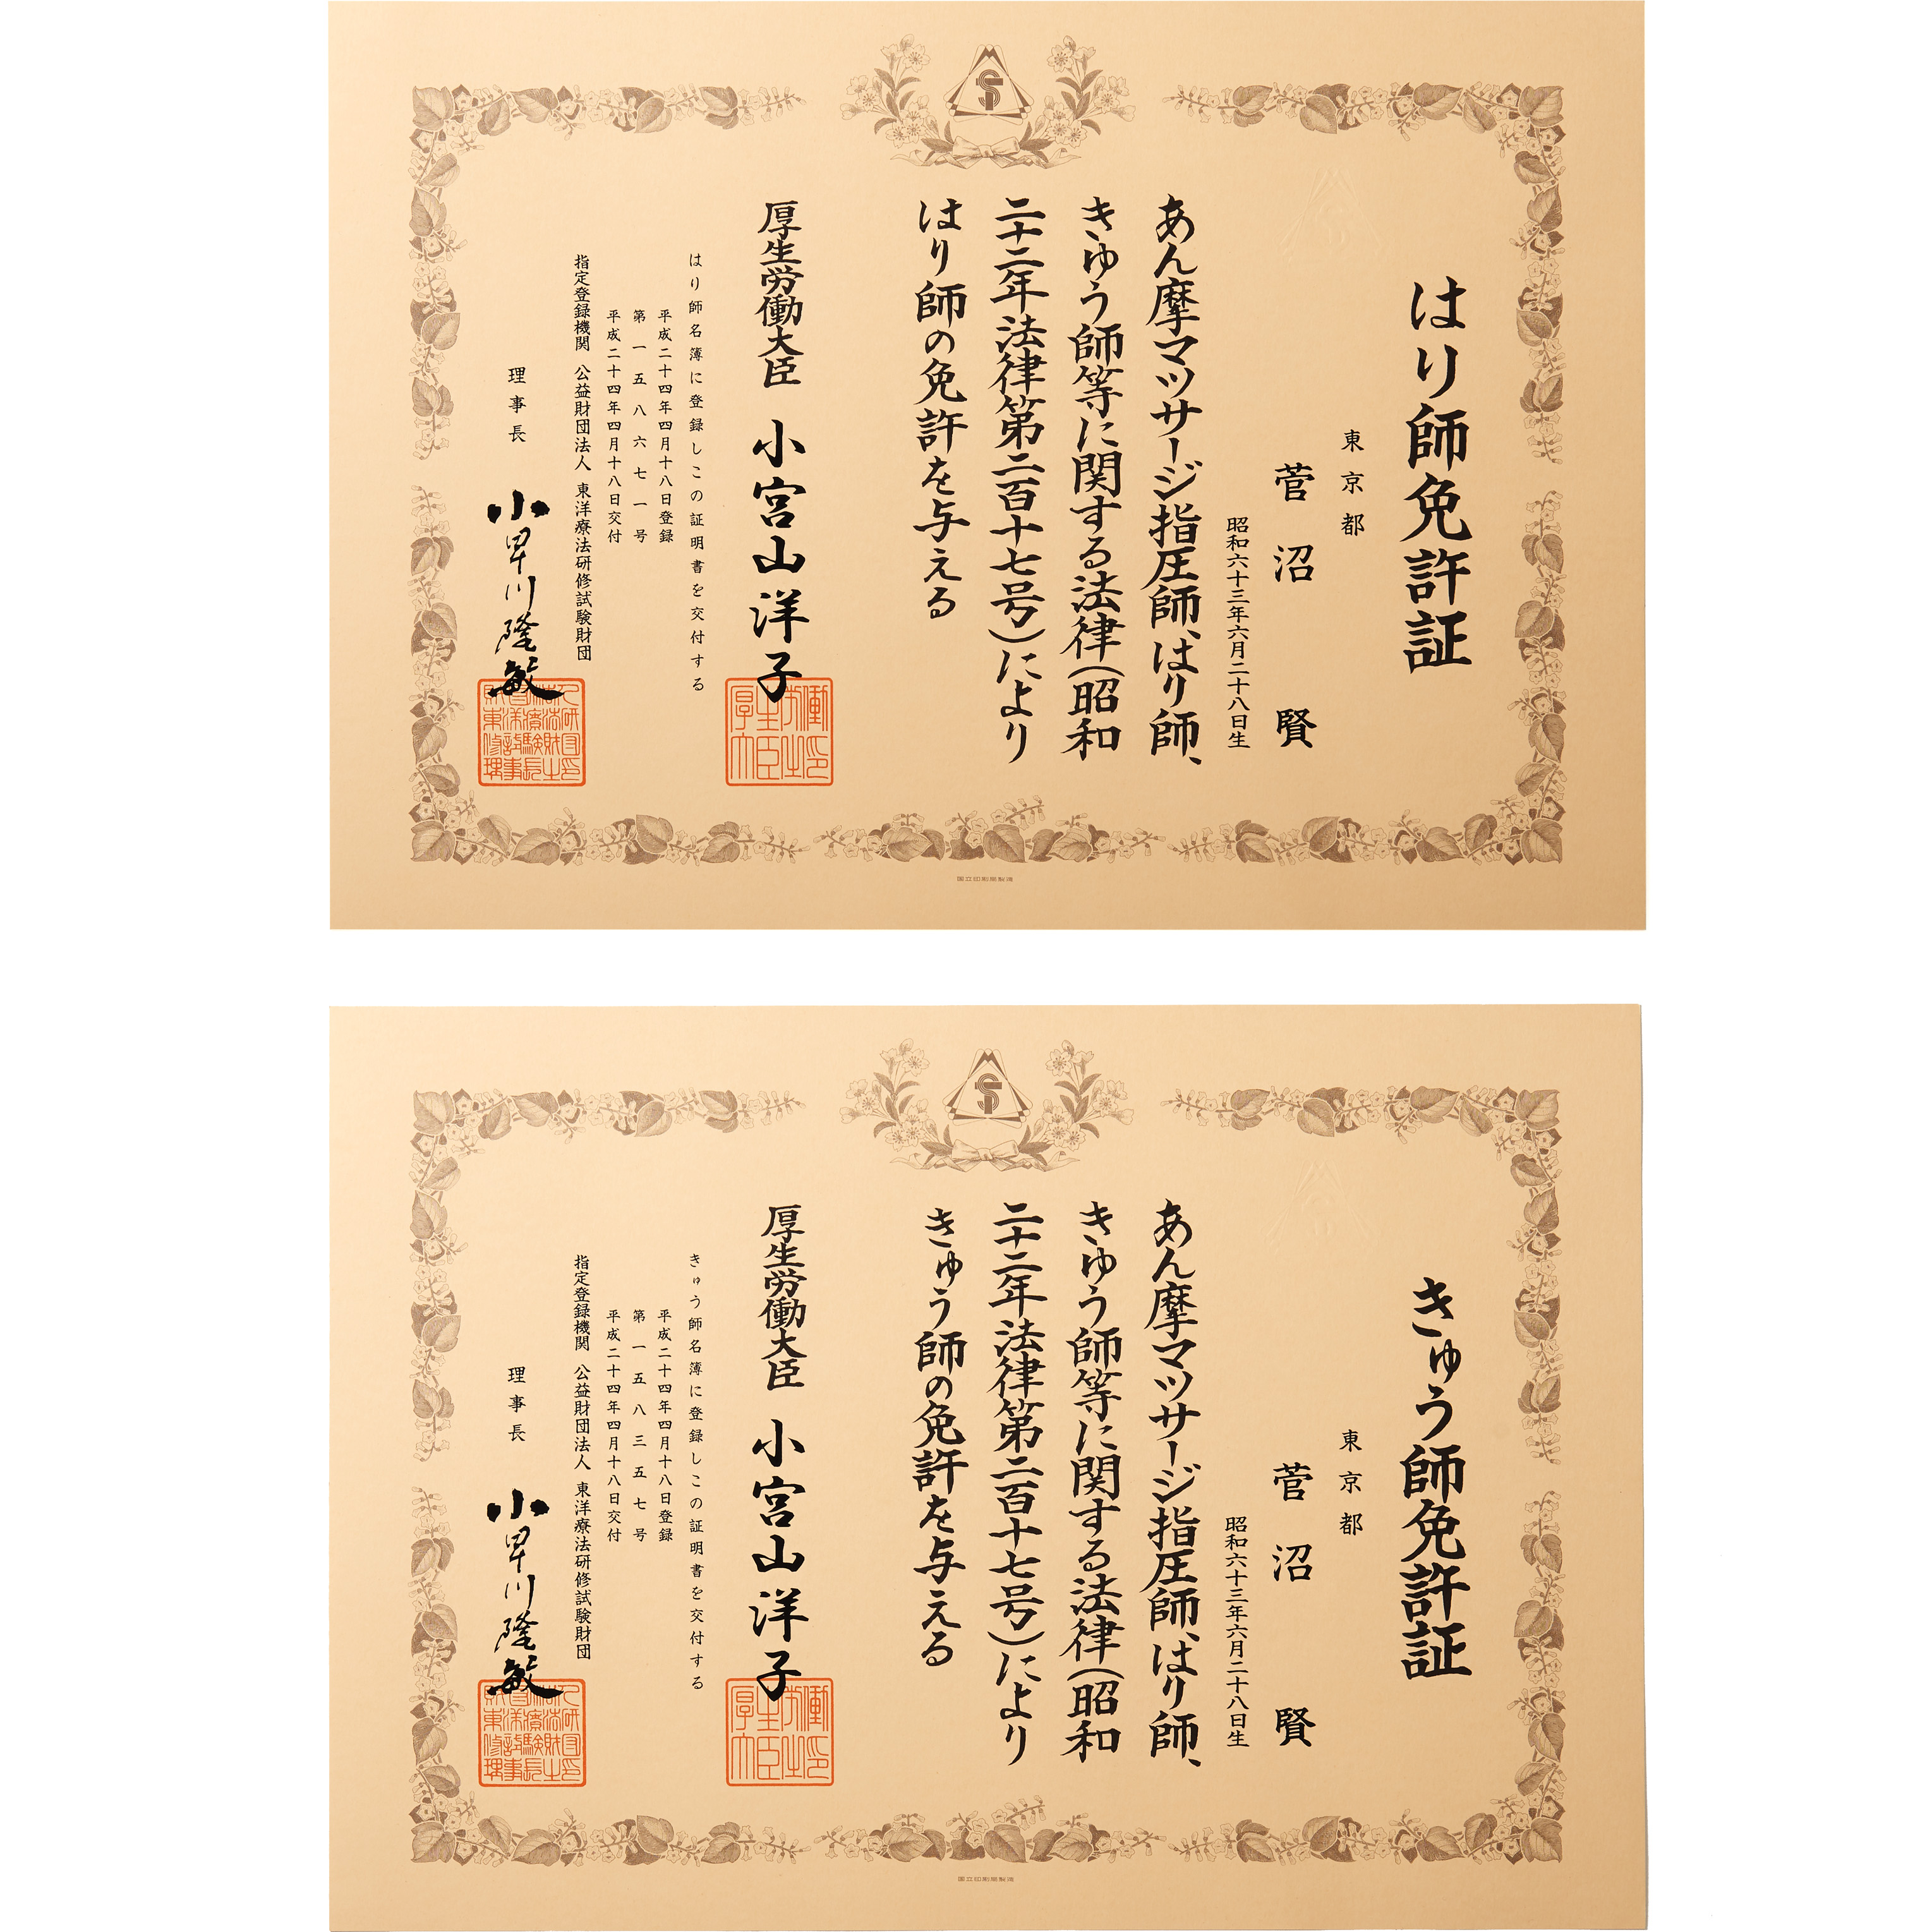 はり師免許証
東京都
菅沼 賢
昭和六十三年六月二十八日生
あん摩マツサージ指圧師、はり師、
きゆう師等に関する法律(昭和
二十二年法律第二百十七号)により
はり師の免許を与える
厚生労働大臣 小宮山洋子
はり師名簿に登録しこの証明書を交付する
平成二十四年四月十八日登録
第一五八六七一号
平成二十四年四月十八日交付
指定登録機関 公益財団法人 東洋療法研修試験財団
理事長 小早川隆敏
国立印刷局製造
きゅう師免許証
東京都
菅沼 賢
昭和六十三年六月二十八日生
あん摩マツサージ指圧師、はり師、
きゆう師等に関する法律(昭和
二十二年法律第二百十七号)により
きゅう師の免許を与える
厚生労働大臣 小宮山洋子
きゅう師名簿に登録しこの証明書を交付する
平成二十四年四月十八日登録
第一五八三五七号
平成二十四年四月十八日交付
指定登録機関 公益財団法人 東洋療法研修試験財団
理事長 小早川隆敏
国立印刷局製造